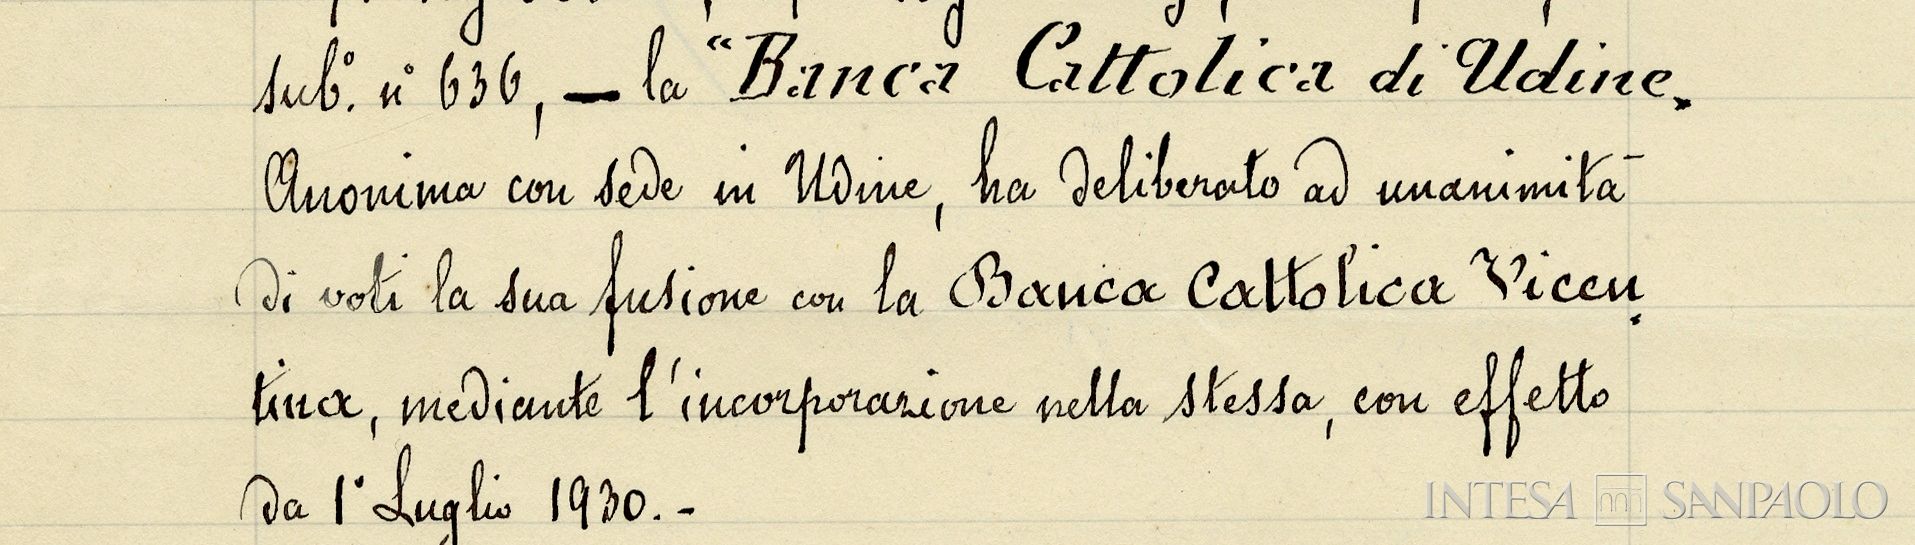 sub.° n° 636, — la "Banca Cattolica di Udine.
Anonima con sede in Udine, ha deliberato ad unanimità
di voti la sua fusione con la Banca Cattolica Vicen
tina, mediante l'incorporazione nella stessa, con effetto
da 1° Luglio 1930.-
INTESA SANPAOLO